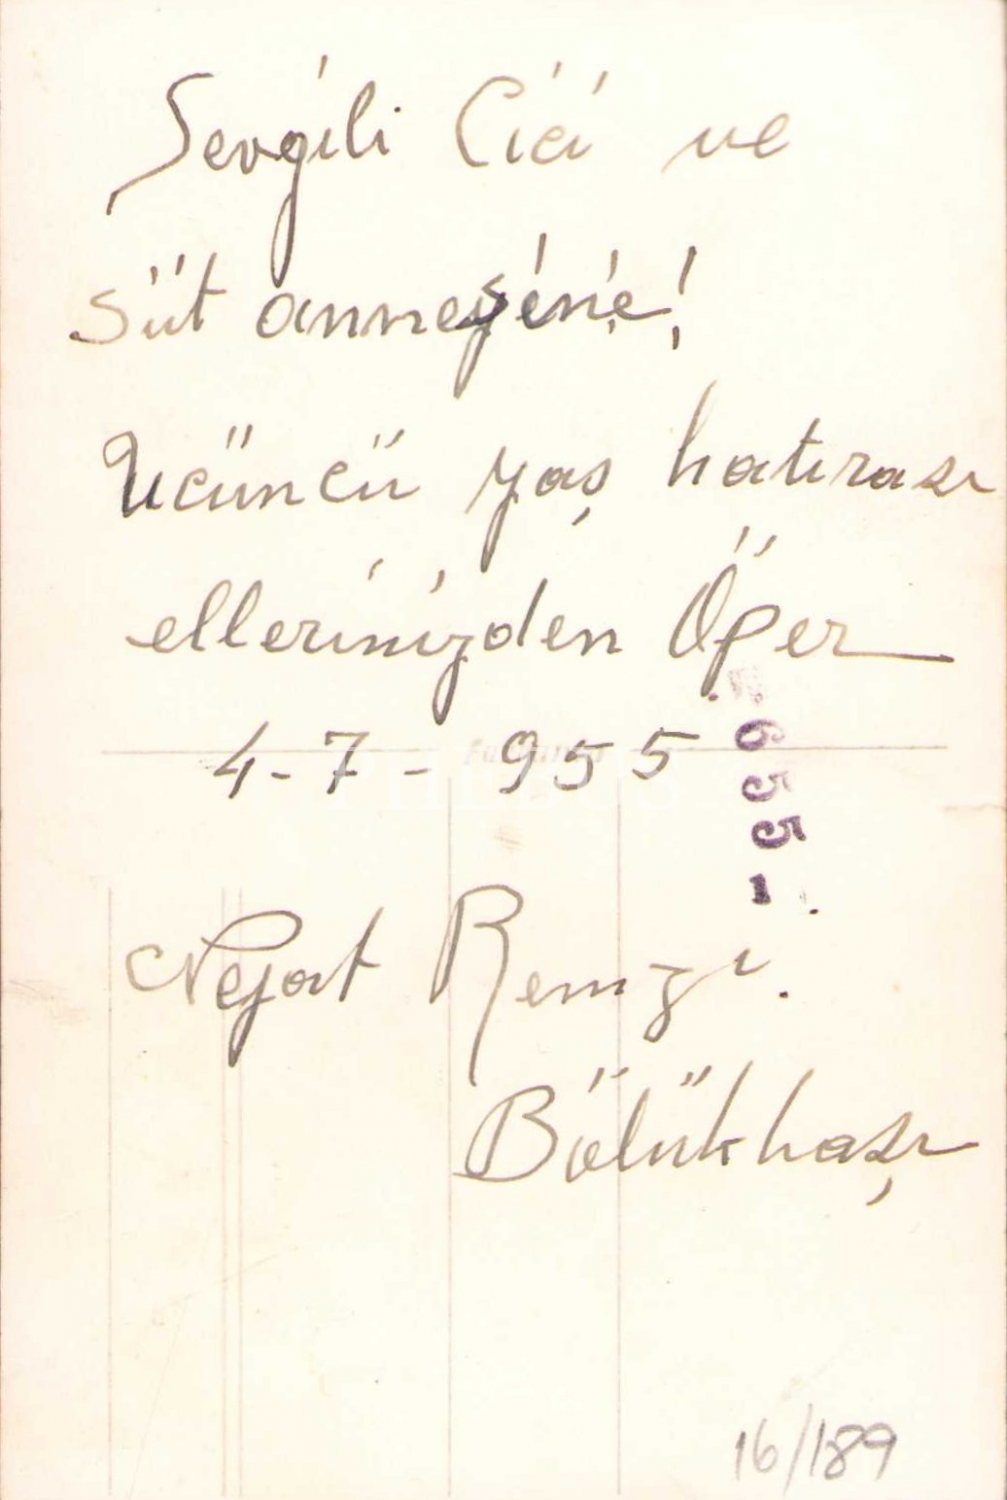 Sevgili Cici ve
Süt annesine!
Ücüncü yaş hatırası
ellerinizden Öper
4-7-955
6 5 5 -
Nejat Remzi.
Bölükbaşı
16/189